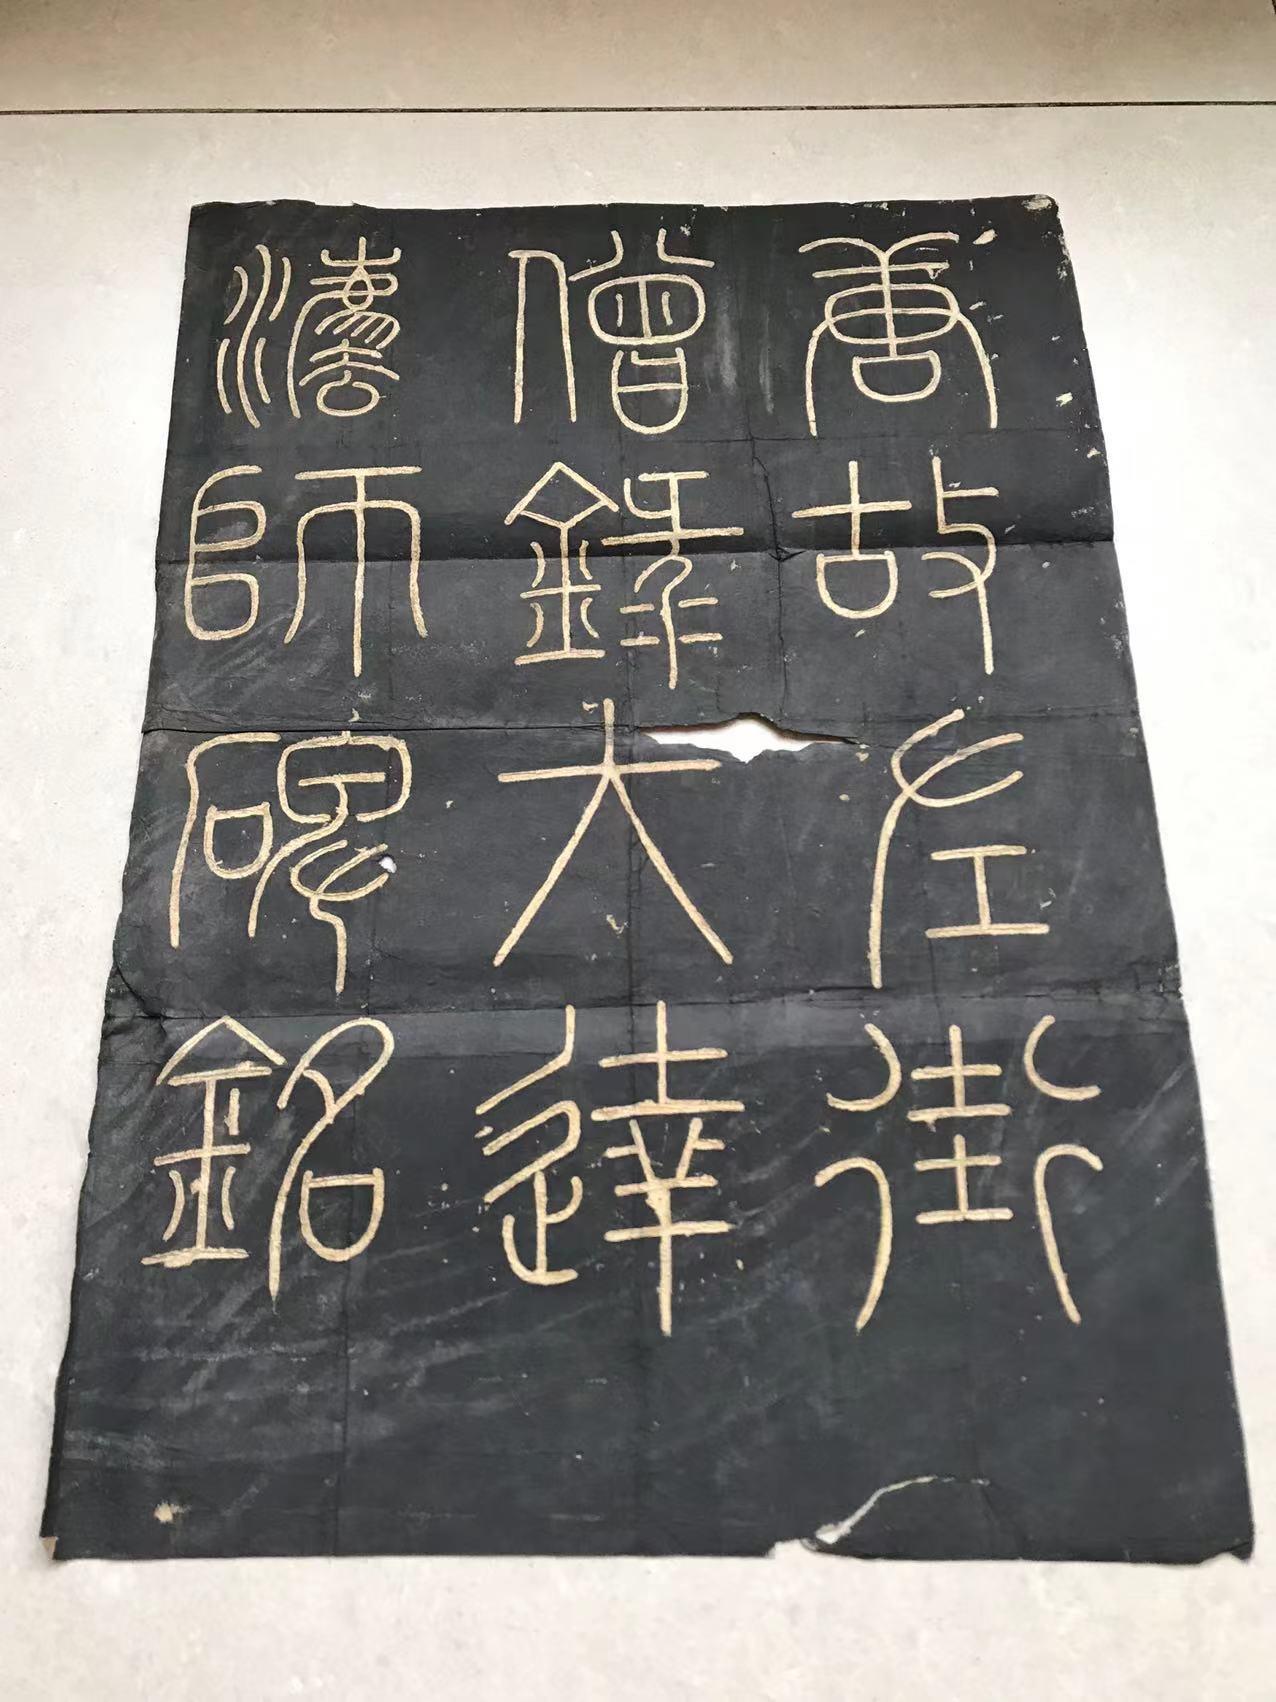 唐故左街
僧録大達
灋師碑銘